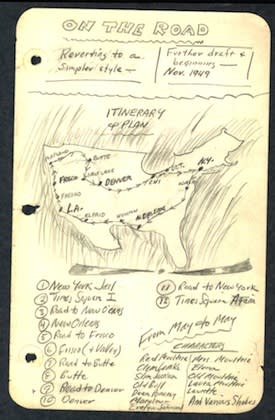 ON THE ROAD
Reverting to a
Simpler style —
Further draft &
beginning —
Nov. 1949
ITINERARY
& PLAN
PORTLAND
BUTTE
SALT LAKE
FRISCO
DENVER
CHI
DET.
N.Y.
WASH.
FRESNO
L.A.
EL PASO
HOUSTON
N. ORLEANS
① New York Jail
② Times Square I
③ Road to New Orleans
④ New Orleans
⑤ Road to Frisco
⑥ Frisco (& Valley)
⑦ Road to Butte
⑧ Butte
⑨ Road to Denver
⑩ Denver
⑪ Road to New York
⑫ Times Square Again
From May to May
CHARACTERS
Red Moultrie
Old Bull
Dean Pomeray
Marylou
Mrs. Moultrie
Old Moultrie
Laura Moultrie
And Various Others